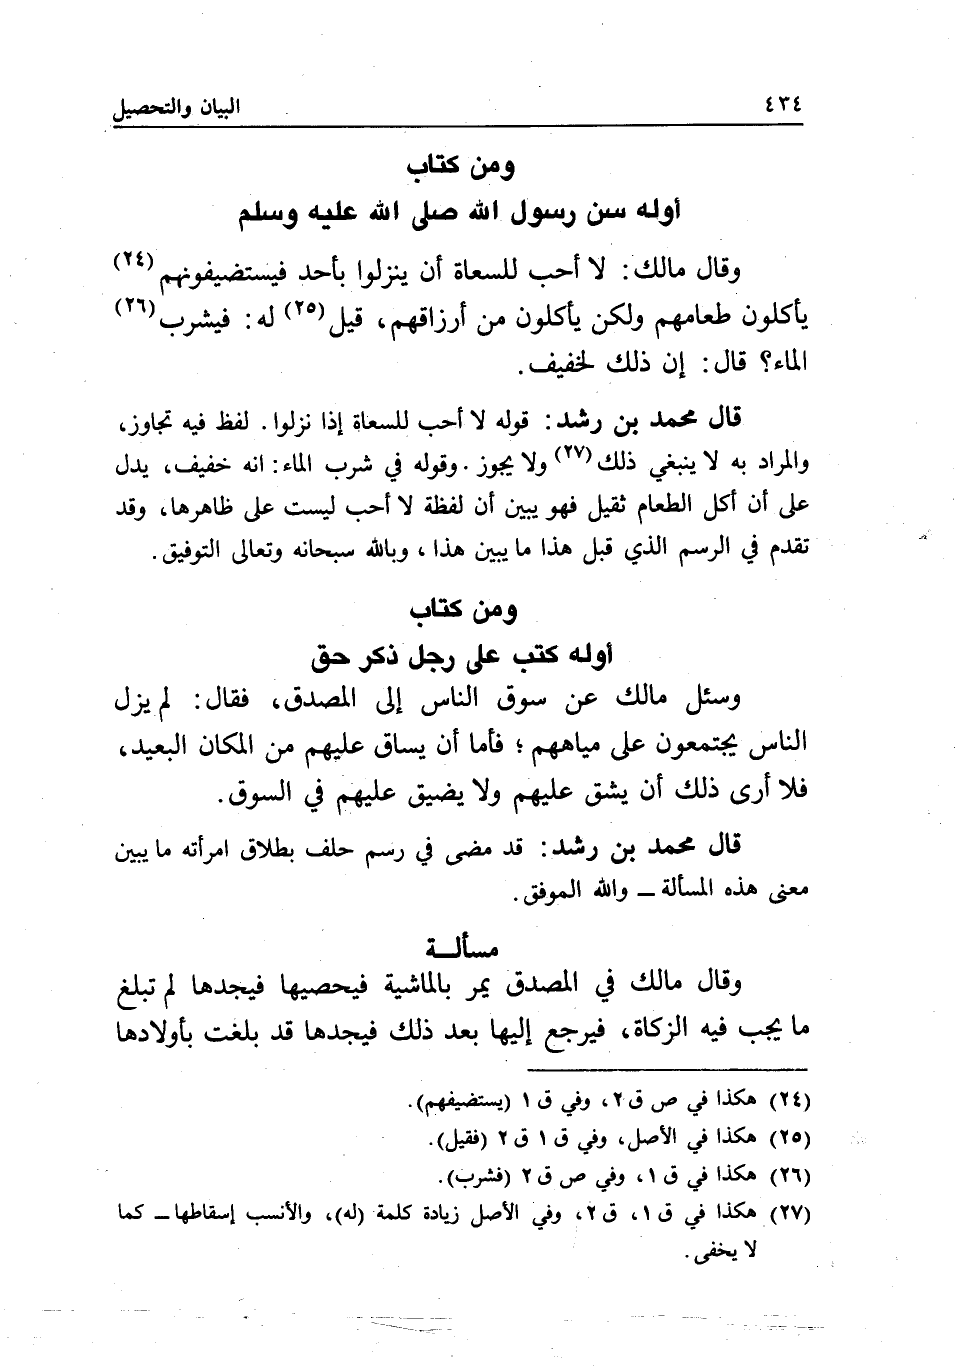 ٤٣٤
البيان والتحصيل
ومن كتاب
أوله سن رسول الله صلى الله عليه وسلم
وقال مالك: لا أحب للسعاة أن ينزلوا بأحد فيستضيفونهم (٢٤)
يأكلون طعامهم ولكن يأكلون من أرزاقهم، قيل (٢٥) له: فيشرب (٢٦)
الماء؟ قال: إن ذلك لخفيف.
قال محمد بن رشد: قوله لا أحب للسعاة إذا نزلوا. لفظ فيه تجاوز،
والمراد به لا ينبغي ذلك (٢٧) ولا يجوز. وقوله في شرب الماء: انه خفيف، يدل
على أن أكل الطعام ثقيل فهو يبين أن لفظة لا أحب ليست على ظاهرها، وقد
تقدم في الرسم الذي قبل هذا ما يبين هذا، وبالله سبحانه وتعالى التوفيق.
ومن كتاب
أوله كتب على رجل ذكر حق
وسئل مالك عن سوق الناس إلى المصدق، فقال: لم يزل
الناس يجتمعون على مياههم؛ فأما أن يساق عليهم من المكان البعيد،
فلا أرى ذلك أن يشق عليهم ولا يضيق عليهم في السوق.
قال محمد بن رشد: قد مضى في رسم حلف بطلاق امرأته ما يبين
معنى هذه المسألة ــ والله الموفق.
مسألــة
وقال مالك في المصدق يمر بالماشية فيحصيها فيجدها لم تبلغ
ما يجب فيه الزكاة، فيرجع إليها بعد ذلك فيجدها قد بلغت بأولادها
(٢٤) هكذا في ص ق ٢، وفي ق ١ (يستضيفهم).
(٢٥) هكذا في الأصل، وفي ق ١ ق ٢ (فقيل).
(٢٦) هكذا في ق ١، وفي ص ق ٢ (فشرب).
(٢٧) هكذا في ق ١، ق ٢، وفي الأصل زيادة كلمة (له)، والأنسب إسقاطها ــ كما
لا يخفى.